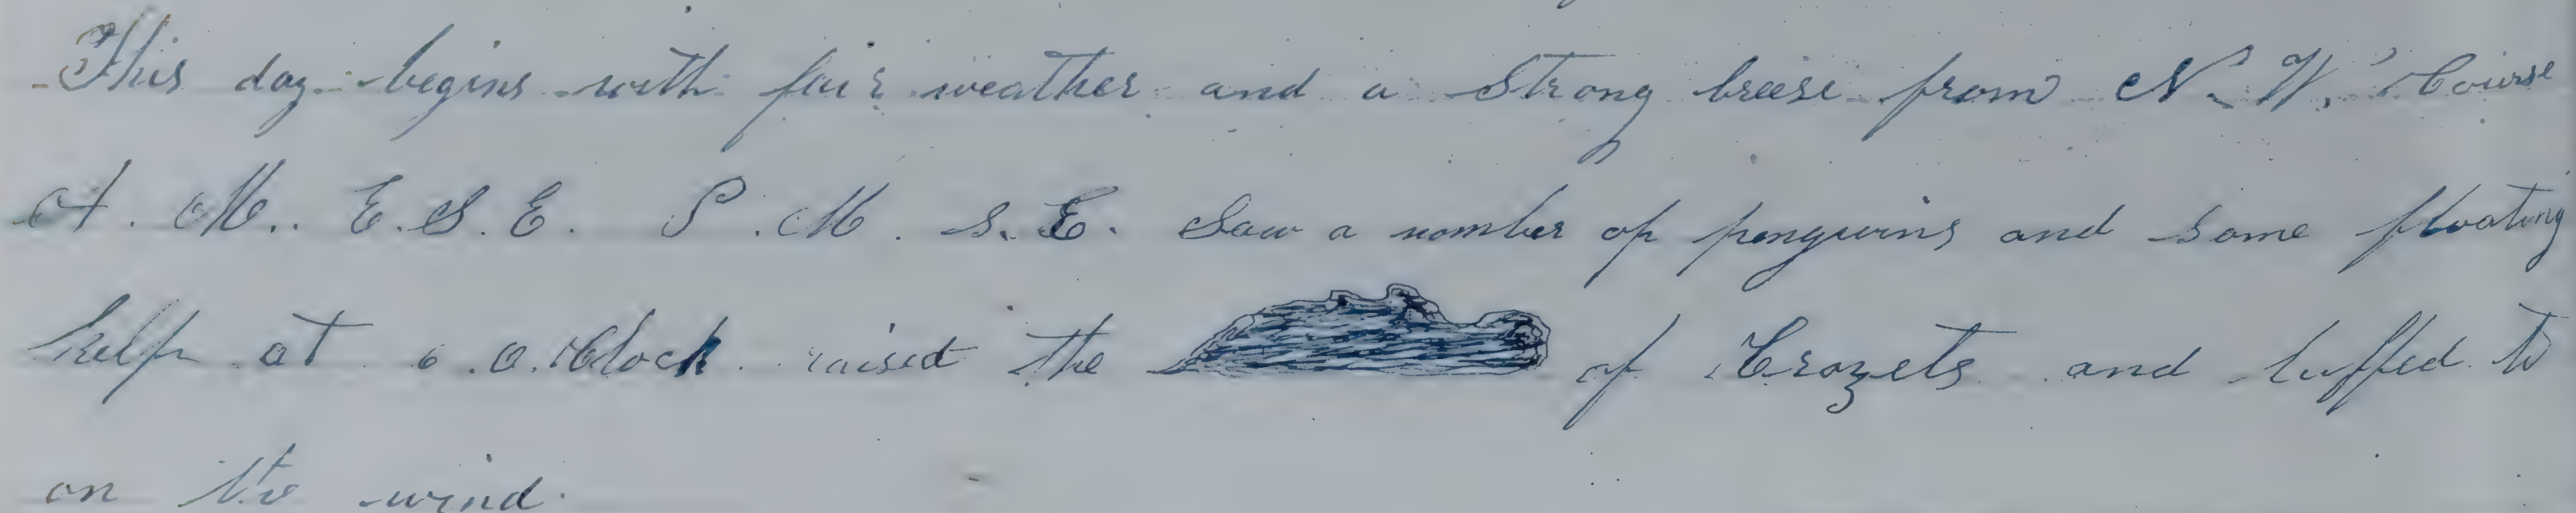 This day begins with fair weather and a Strong breese from N. W. Course
A. M.. E.S.E. P.M. S.E. Saw a number of penguins and some floating
kelp at 6.O.Clock raised the of Crozets and luffed to
on the wind.